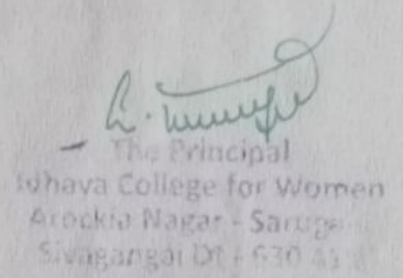 The Principal
Idhaya College for Women
Arockia Nagar - Saruga
Sivagangai Dt - 630 41